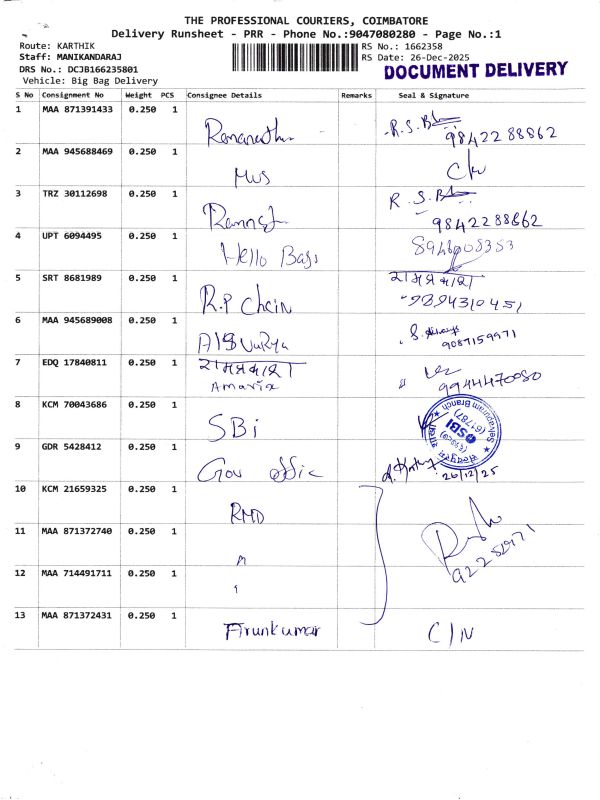 THE PROFESSIONAL COURIERS, COIMBATORE
Delivery Runsheet - PRR - Phone No.:9047080280 - Page No.:1
Route: KARTHIK
RS No.: 1662358
Staff: MANIKANDARAJ
RS Date: 26-Dec-2025
DRS No.: DCJB166235801
DOCUMENT DELIVERY
Vehicle: Big Bag Delivery
S No Consignment No Weight PCS Consignee Details Remarks Seal & Signature
1 MAA 871391433 0.250 1
9842288862
2 MAA 945688469 0.250 1
3 TRZ 30112698 0.250 1 R.S.
9842288862
4 UPT 6094495 0.250 1 Hello Bags
5 SRT 8681989 0.250 1 R.P Chain 9894310451
6 MAA 945689008 0.250 1 9087159971
7 EDQ 17840811 0.250 1 9944470080
8 KCM 70043686 0.250 1 SBi
SBI
9 GDR 5428412 0.250 1 Gov offic 26/12/25
10 KCM 21659325 0.250 1 RMD
11 MAA 871372740 0.250 1 "
12 MAA 714491711 0.250 1
13 MAA 871372431 0.250 1 Arunkumar C/N